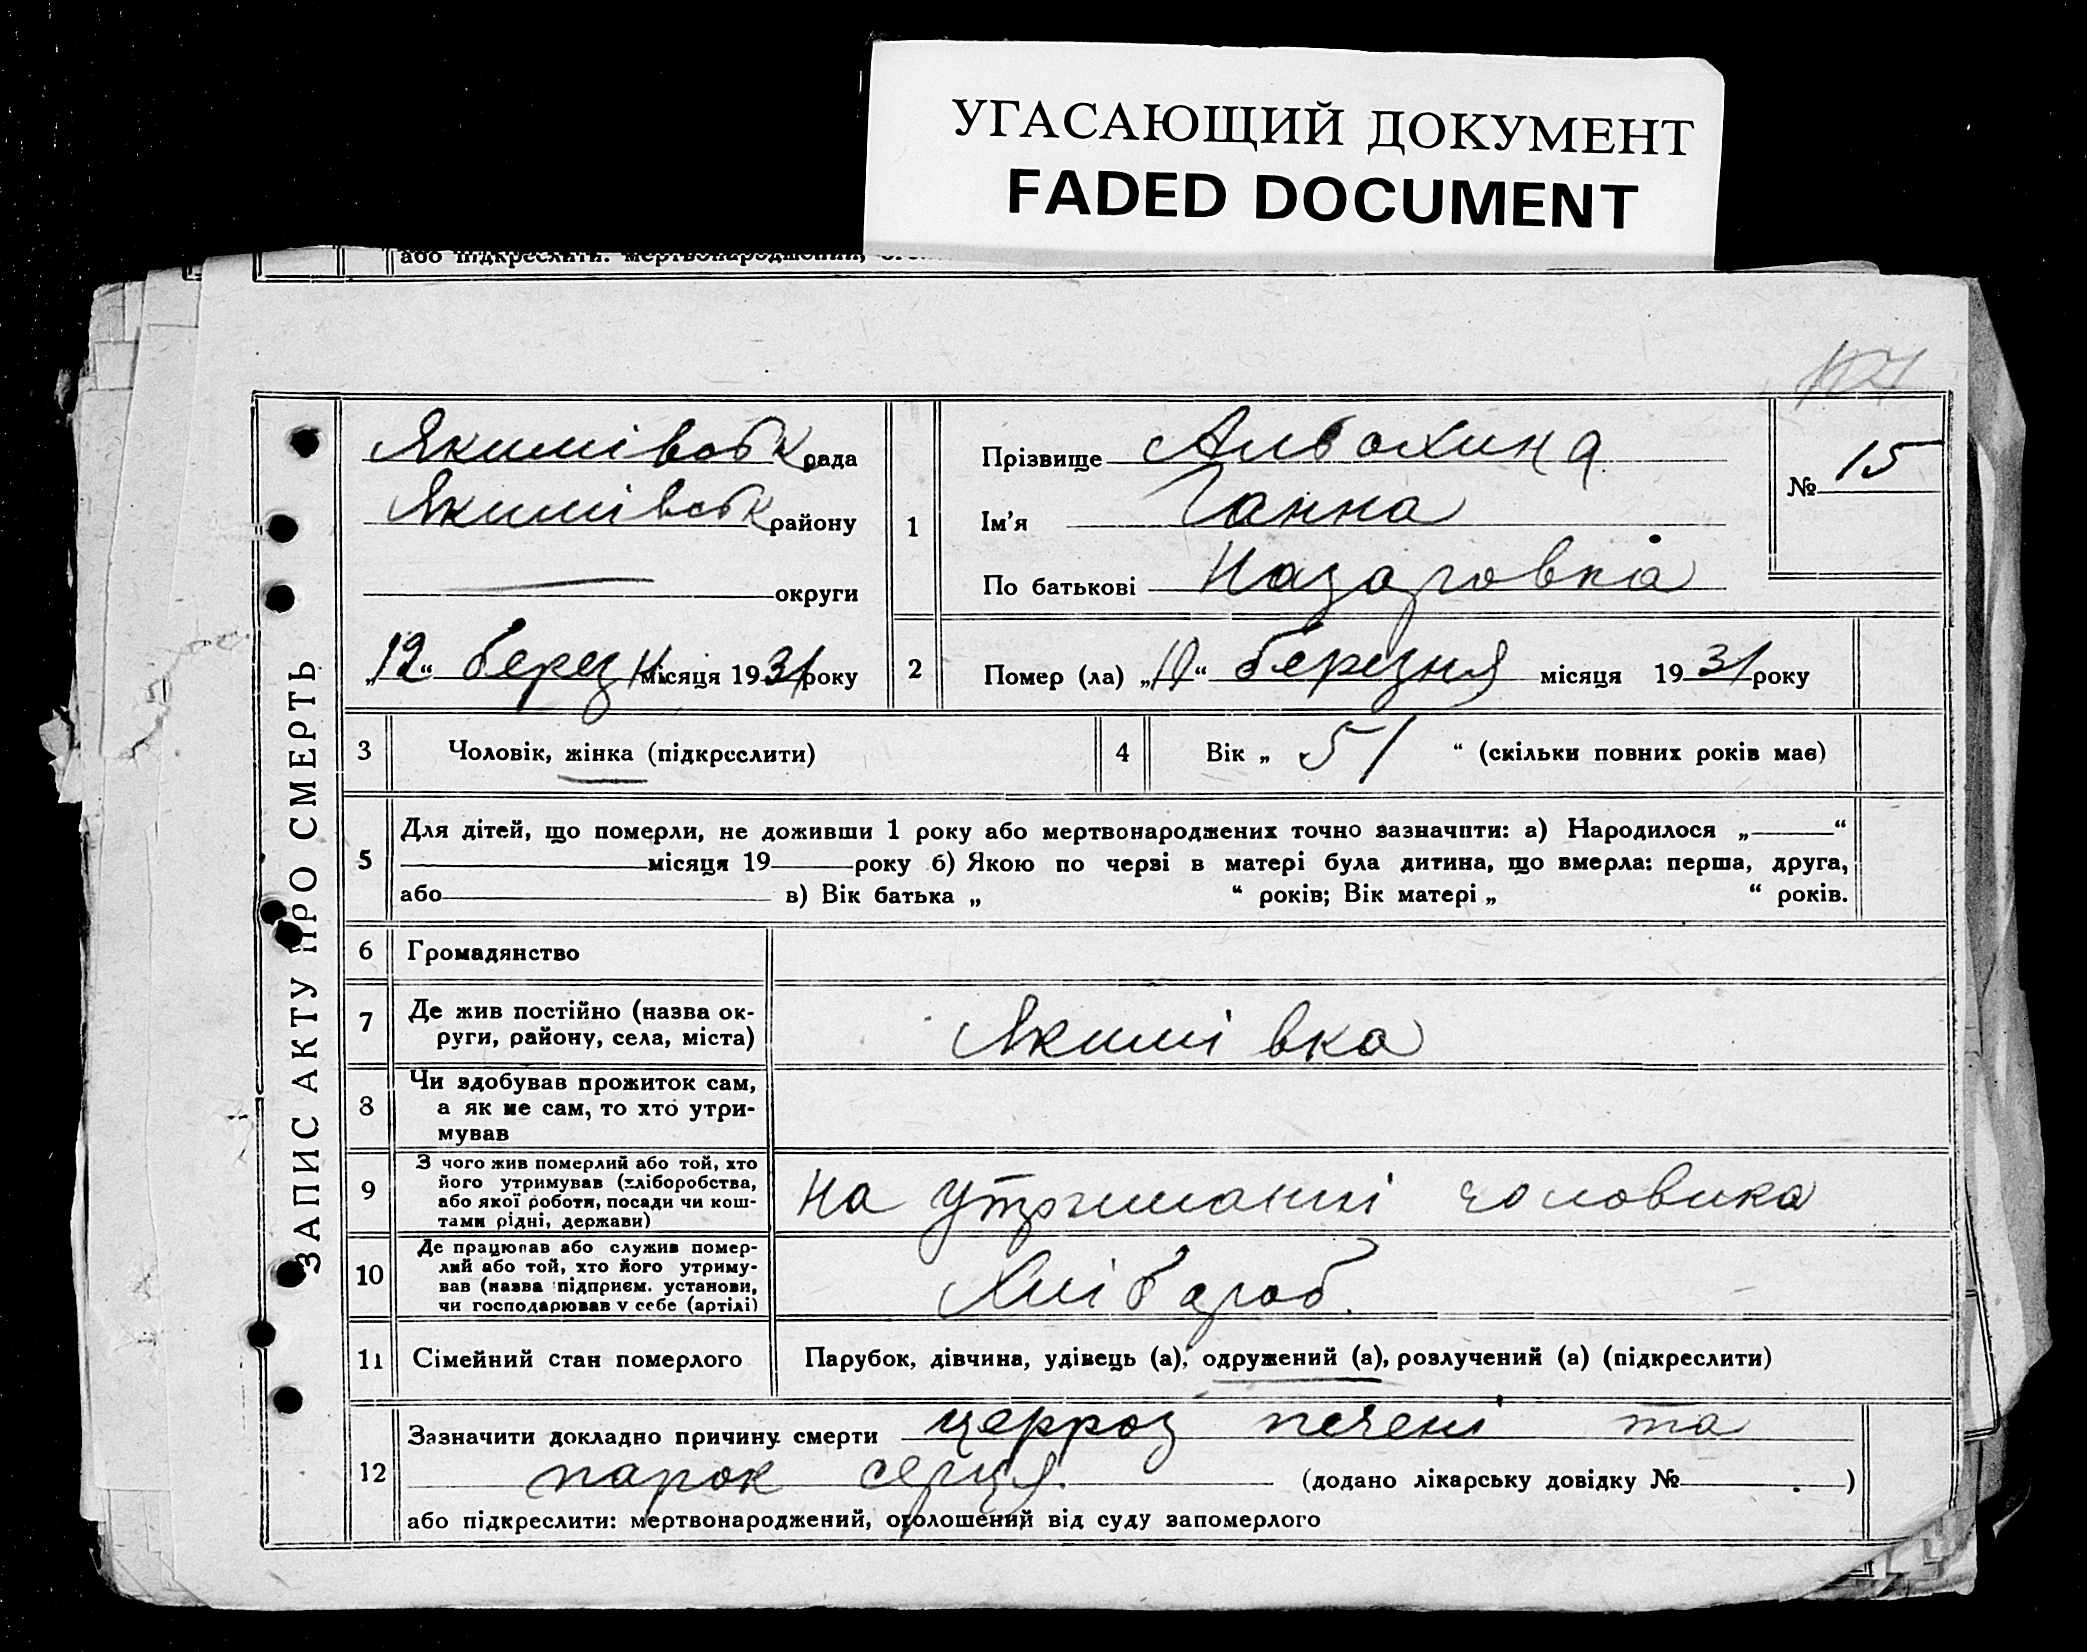 УГАСАЮЩИЙ ДОКУМЕНТ
FADED DOCUMENT
або підкреслити: мертвонароджений,
ЗАПИС АКТУ ПРО СМЕРТЬ
Якимівськ рада
Якимівськ району
округи
„12“ берез місяця 1931 року
1
Прізвище
Ім'я Ганна
По батькові Назаровна
№ 15
2
Помер (ла) „10“ березня місяця 1931 року
3
Чоловік, жінка (підкреслити)
4
Вік „ 51 “ (скільки повних років має)
5
Для дітей, що померли, не доживши 1 року або мертвонароджених точно зазначити: а) Народилося „ “
місяця 19 року б) Якою по черзі в матері була дитина, що вмерла: перша, друга,
або в) Вік батька „ “ років; Вік матері „ “ років.
6
Громадянство
7
Де жив постійно (назва ок-
руги, району, села, міста)
Якимівка
8
Чи здобував прожиток сам,
а як не сам, то хто утри-
мував
9
З чого жив померлий або той, хто
його утримував (хліборобства,
або якої роботи, посади чи кош-
тами рідні, держави)
На утриманні чоловика
10
Де працював або служив помер-
лий або той, хто його утриму-
вав (назва підприєм. установи,
чи господарював у себе (артілі)
Хлібароб.
11
Сімейний стан померлого
Парубок, дівчина, удівець (а), одружений (а), розлучений (а) (підкреслити)
12
Зазначити докладно причину смерти церроз печені та
парок серця. (додано лікарську довідку № )
або підкреслити: мертвонароджений, оголошений від суду запомерлого